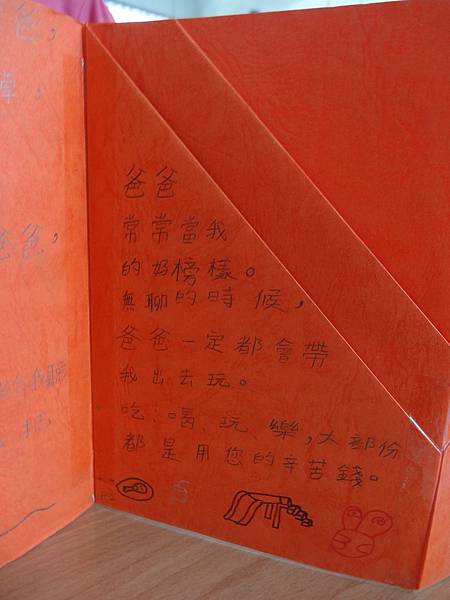 爸，
爸爸，
爸爸
常常當我
的好榜樣。
無聊的時候，
爸爸一定都會帶
我出去玩。
吃、喝、玩樂，大部份
都是用您的辛苦錢。